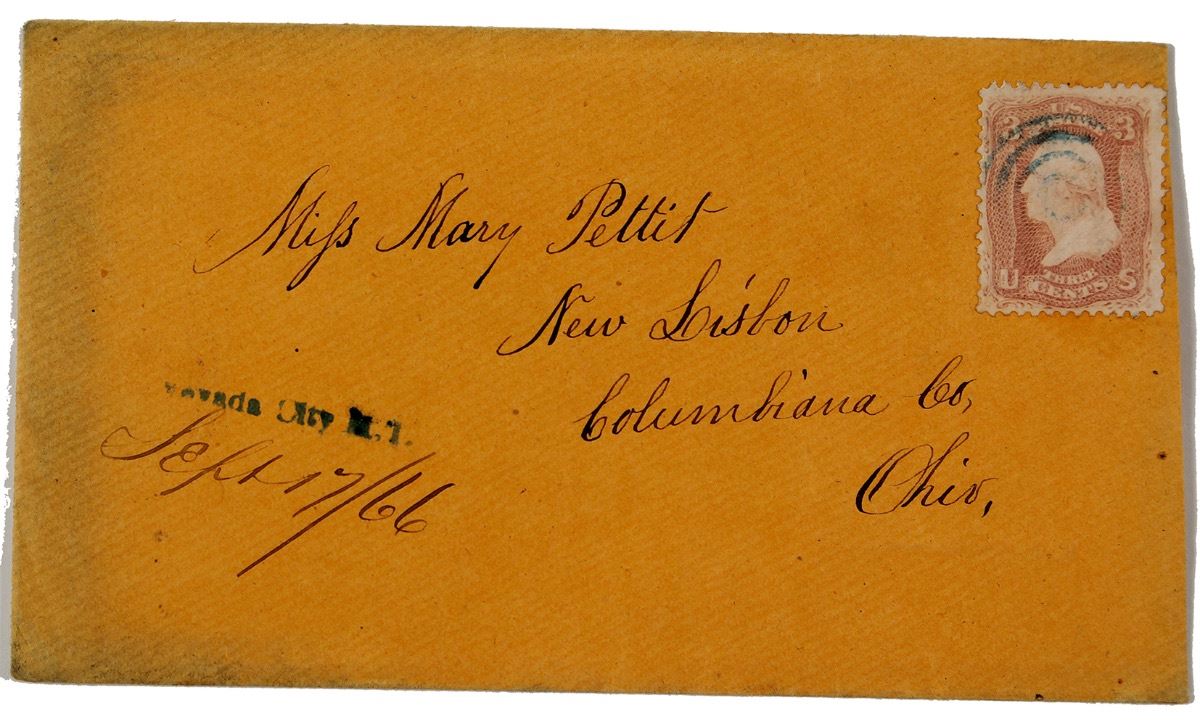 3 U.S. 3
U THREE CENTS S
Miſs Mary Pettit
New Lisbon
Columbiana Co,
Ohio,
Nevada City M.T.
Sept 17/66